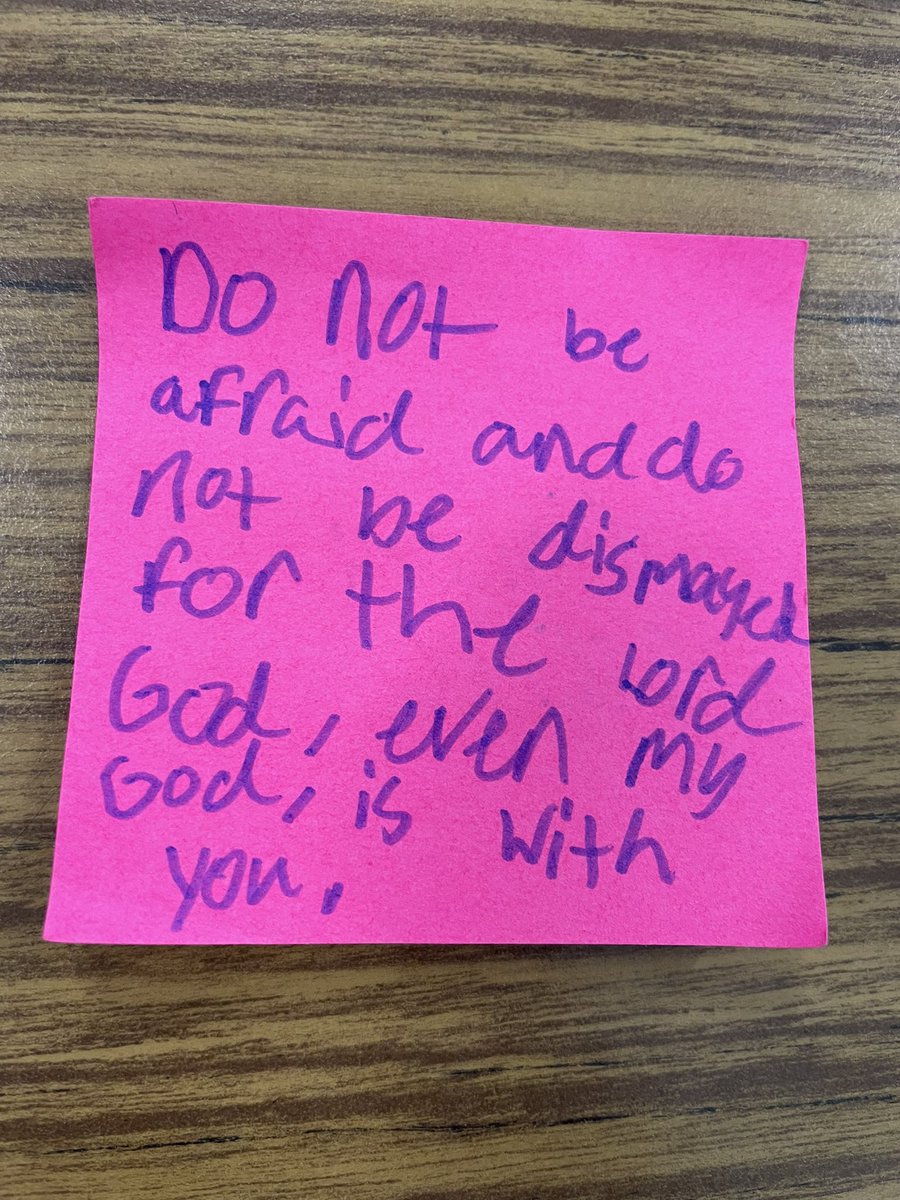 Do not be
afraid and do
not be dismayed
for the lord
God, even my
God, is with
you.